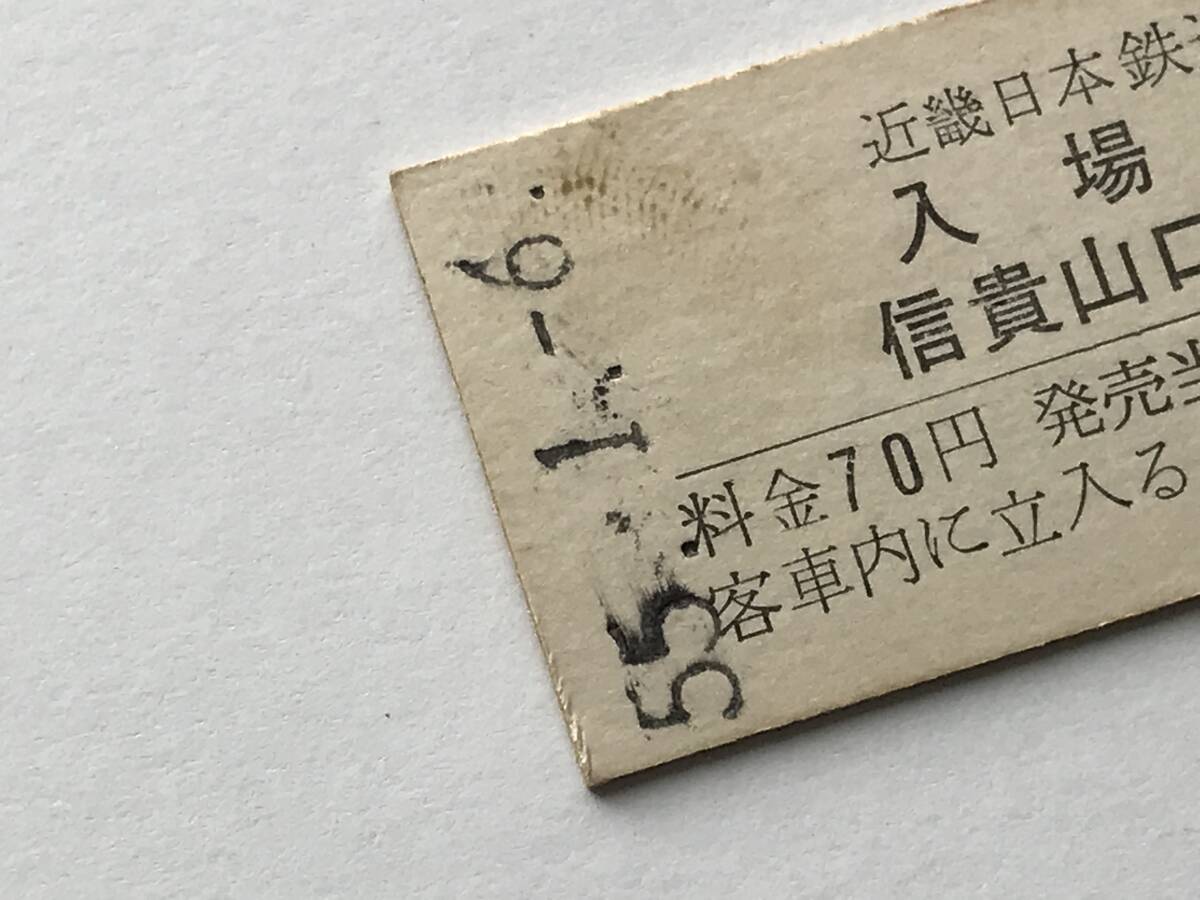 近畿日本鉄道
入場
信貴山口
料金70円 発売当
客車内に立入る
55.-1.-6.